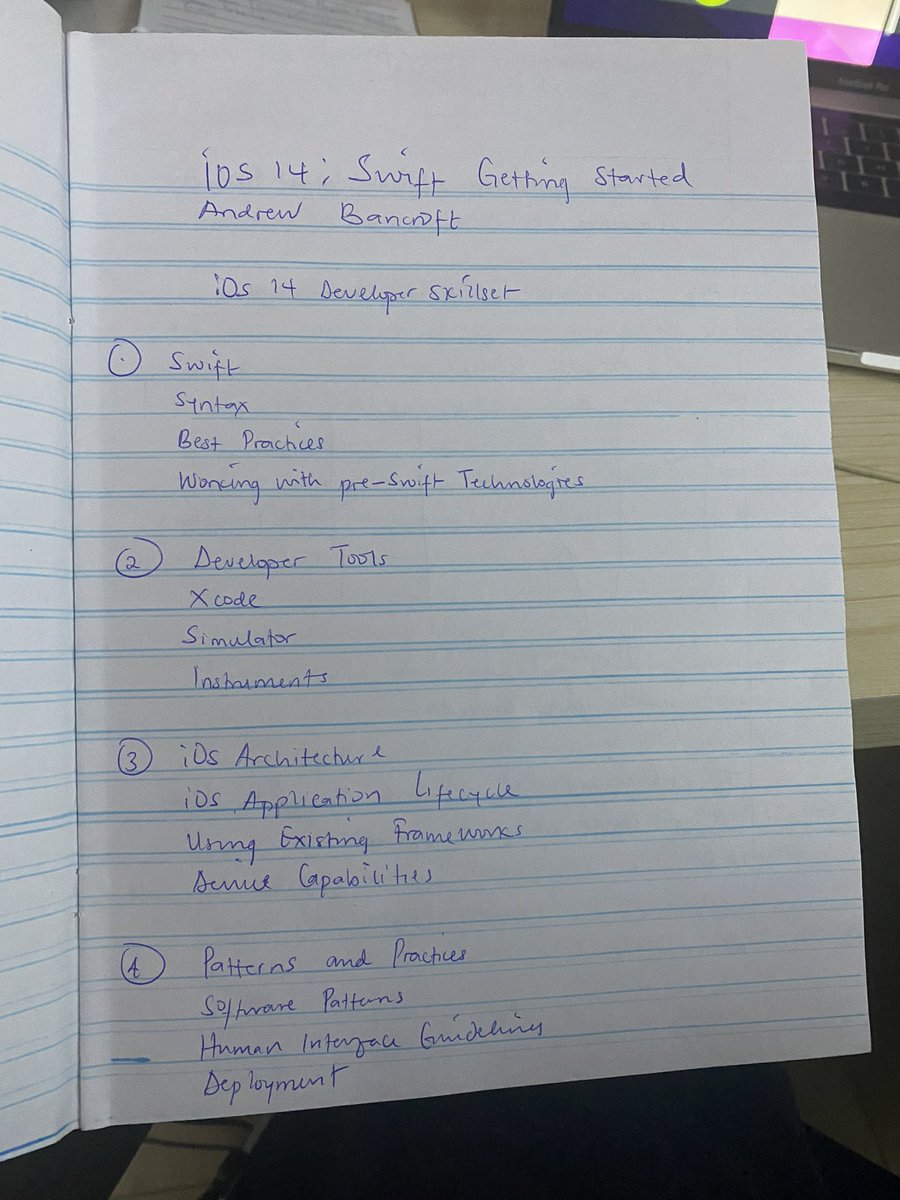 iOS 14; Swift Getting Started
Andrew Bancroft
iOS 14 Developer Skillset
① Swift
Syntax
Best Practices
Working with pre-Swift Technologies
② Developer Tools
Xcode
Simulator
Instruments
③ iOS Architecture
iOS Application Lifecycle
Using Existing Frameworks
Device Capabilities
④ Patterns and Practices
Software Patterns
Human Interface Guidelines
Deployment
MacBook Pro